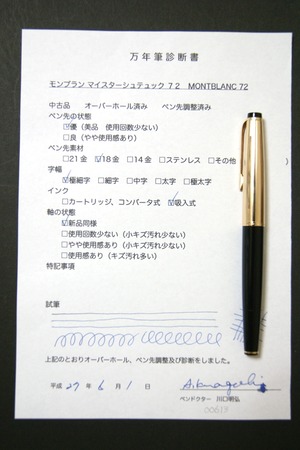 万年筆診断書
モンブラン マイスターシュテュック 72 MONTBLANC 72
中古品 オーバーホール済み ペン先調整済み
ペン先の状態
☑優（美品 使用回数少ない）
□良（やや使用感あり）
ペン先素材
□21金 ☑18金 □14金 □ステンレス □その他 ）
字幅
☑極細字 □細字 □中字 □太字 □極太字
インク
□カートリッジ、コンバータ式 ☑吸入式
軸の状態
☑新品同様
□使用回数少ない（小キズ汚れ少ない）
□やや使用感あり（小キズ汚れ少ない）
□使用感あり（キズ汚れ多い）
特記事項
試筆
上記のとおりオーバーホール、ペン先調整及び診断をしました。
平成 27 年 6 月 1 日
ペンドクター 川口明弘
00613